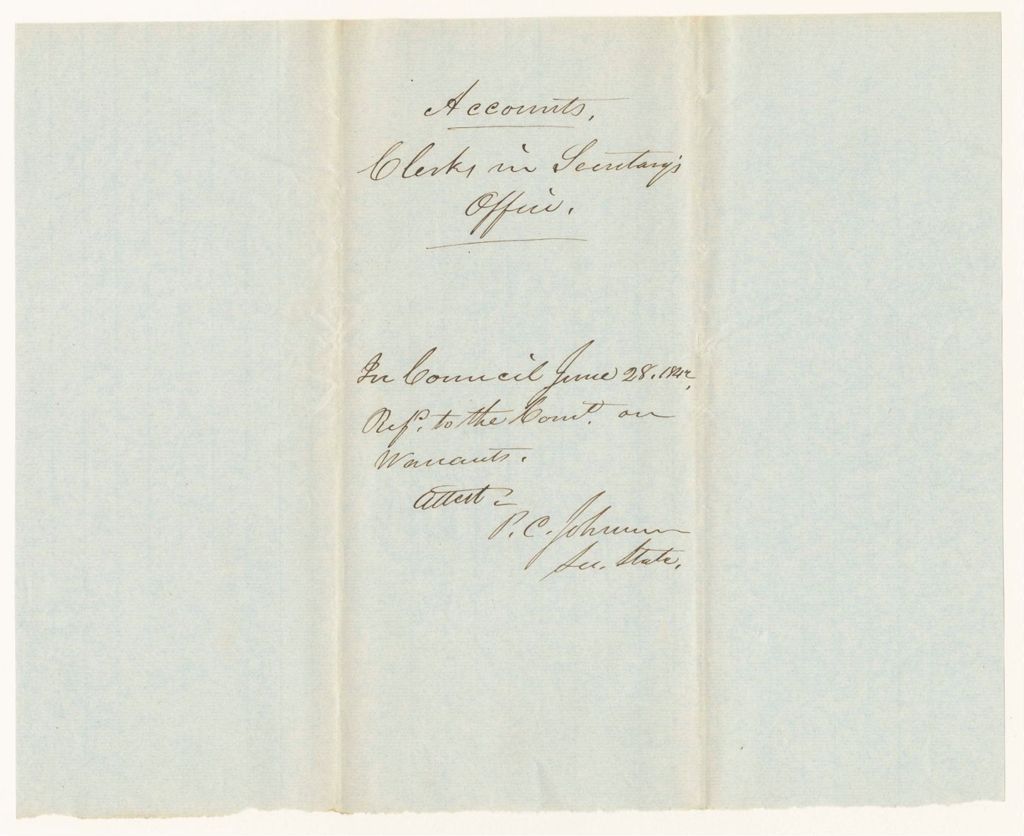 Accounts.
Clerks in Secretary's
Office.
In Council June 28. 1842.
Refd. to the Comt. on
Warrants.
Attest:
P. C. Johnson
Sec. State.